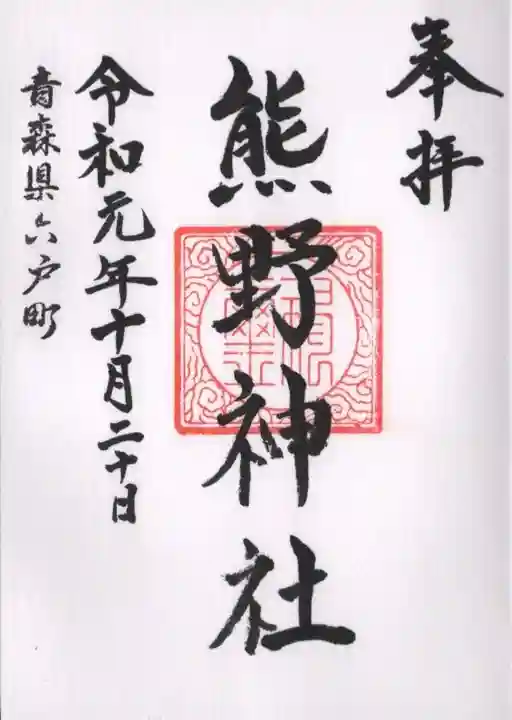 奉拝
熊野神社
令和元年十月二十日
青森県六戸町